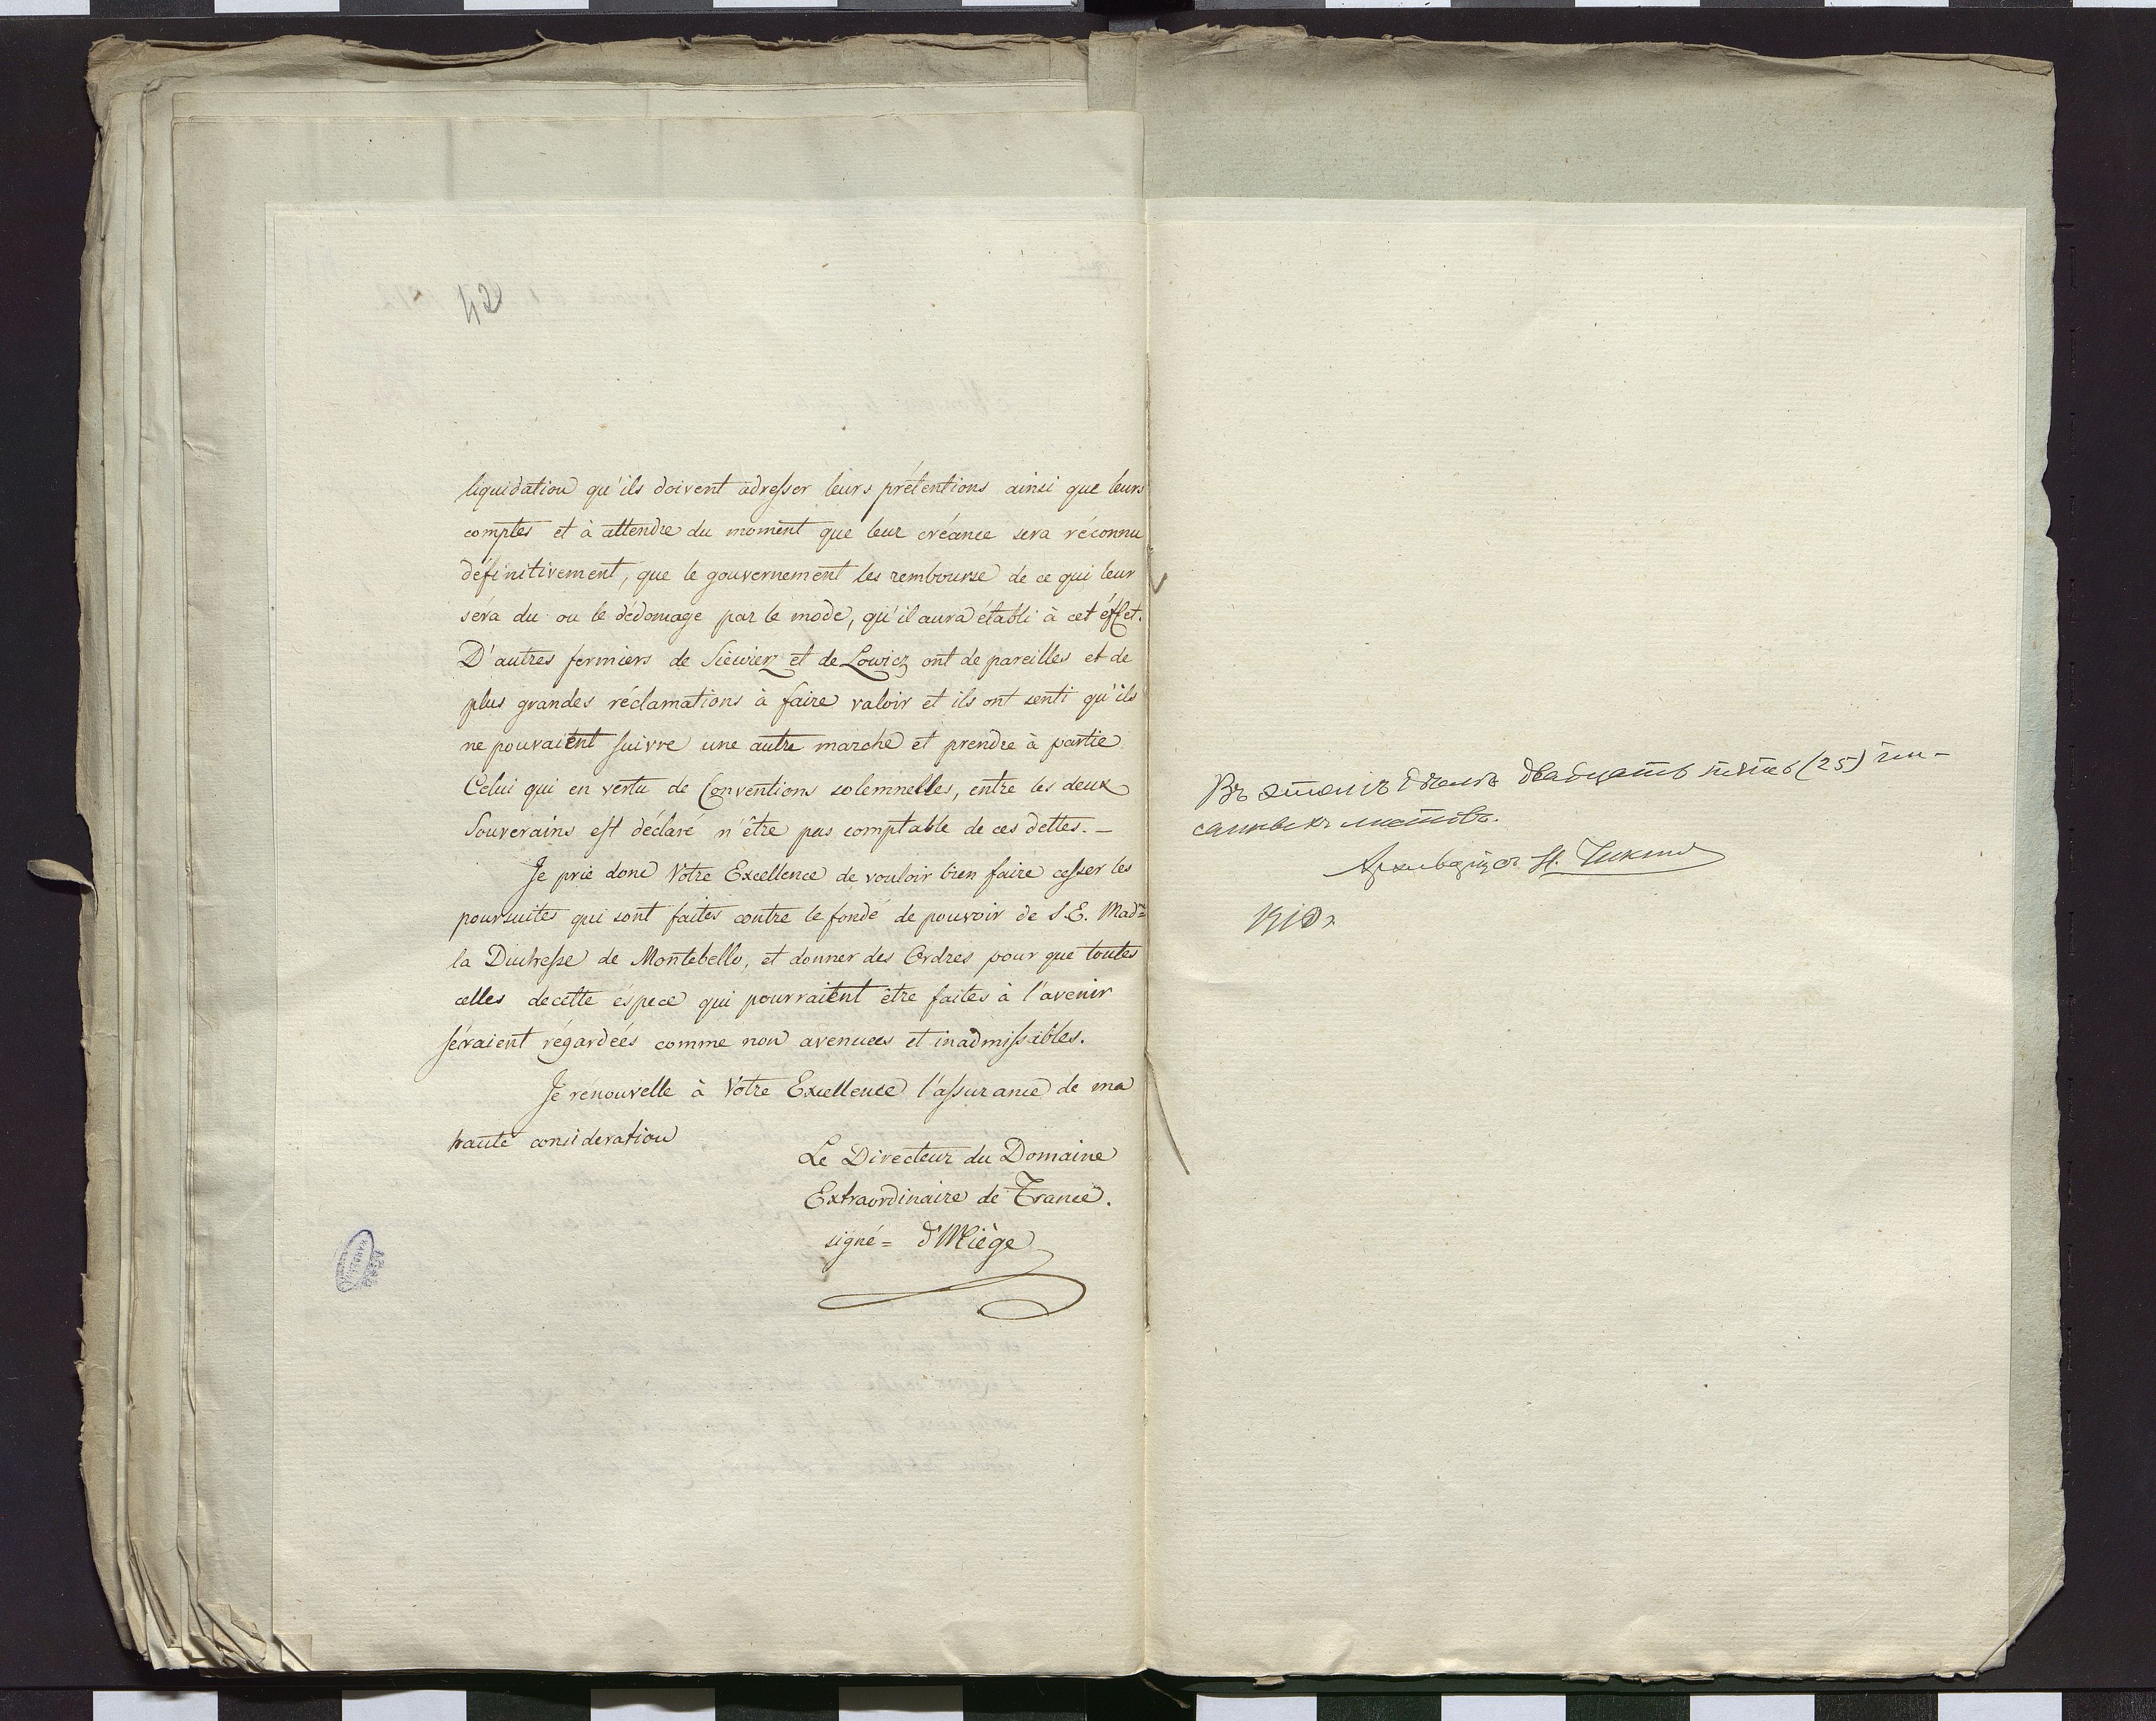 42
liquidation qu'ils doivent adresser leurs prétentions ainsi que leurs
comptes et à attendre du moment que leur créance sera réconnu
définitivement, que le gouvernement les rembourse de ce qui leur
séra du ou le dédomage par le mode, qu'il aura établi à cet éffet.
D'autres fermiers de Siewierz et de Lowicz ont de pareilles et de
plus grandes réclamations à faire valoir et ils ont senti qu'ils
ne pouvaient suivre une autre marche et prendre à partie
Celui qui en vertu de Conventions solemnelles, entre les deux
Souverains est déclaré n'être pas comptable de ces dettes. —
Je prie donc Votre Excellence de vouloir bien faire cesser les
poursuites qui sont faites contre le fondé de pouvoir de S. E. Mad.me
la Duchesse de Montebello, et donner des Ordres pour que toutes
celles de cette éspece qui pourraient être faites à l'avenir
séraient régardéés comme non avenues et inadmissables.
Je renouvelle à Votre Excellence l'assurance de ma
haute consideration
Le Directeur du Domaine
Extraordinaire de France.
signé = d'Miège
Въ этомъ дѣлѣ двадцать пять (25) пи-
санныхъ листовъ.
Архиваріусъ